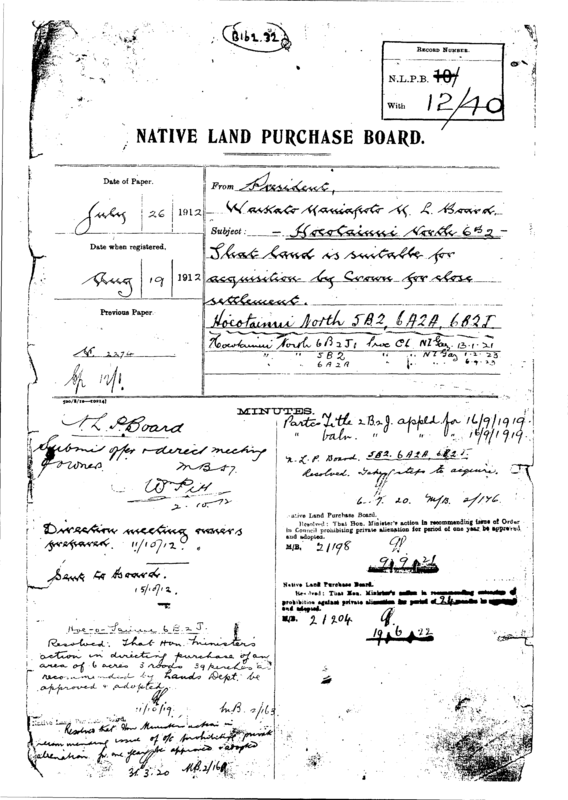 B162.32
RECORD NUMBER.
N.L.P.B. 10/
With 12/40
NATIVE LAND PURCHASE BOARD.
Date of Paper.
July 26 1912
Date when registered.
Aug 19 1912
Previous Paper.
2274
From President,
Waikato Maniapoto M. L. Board.
Subject: - Hoeotainui North 6B2 -
That land is suitable for
acquisition by Crown for close
settlement.
Hoeotainui North 5B2, 6A2A, 6B2J.
Hoeotainui North 6B2J, NZ Gaz. 13.1.21
" " 5B2 " NZ Gaz 1.2.23
" 6A2A "
500/8/12—10214]
MINUTES.
N. L. P. Board
Submit & direct meeting
owners.
M.B.
2.10.12
Direction meeting owners
prepared. 11/10/12.
Sent to Board.
15/10/12.
Hoe-o-Tainui 6B2J.
Resolved: That Hon. Minister's
action in directing purchase of an
area of 6 acres 3 roods 39 perches as
recommended by Lands Dept. be
approved & adopted
11/10/19. M.B. 2/163
Native Land Purchase Board
Resolved that Hon Minister action in
recommending issue of O/C prohibiting private
alienation for one year be approved & adopted
31.3.20 M.B. 2/168
Partcs Title 2B2J. appld. for 16/9/1919.
" valn. " " " 16/9/1919.
N. L. P. Board. 5B2. 6A2A. 6B2J.
Resolved. steps to acquire.
6.7.20. M/B. 2/176.
Native Land Purchase Board.
Resolved: That Hon. Minister's action in recommending issue of Order
in Council prohibiting private alienation for period of one year be approved
and adopted.
M/B. 2/198
9.9.21
Native Land Purchase Board.
Resolved: That Hon. Minister's action in recommending extension of
prohibition against private alienation for period of 24 months be approved
and adopted.
M/B. 2/204
19.6.22